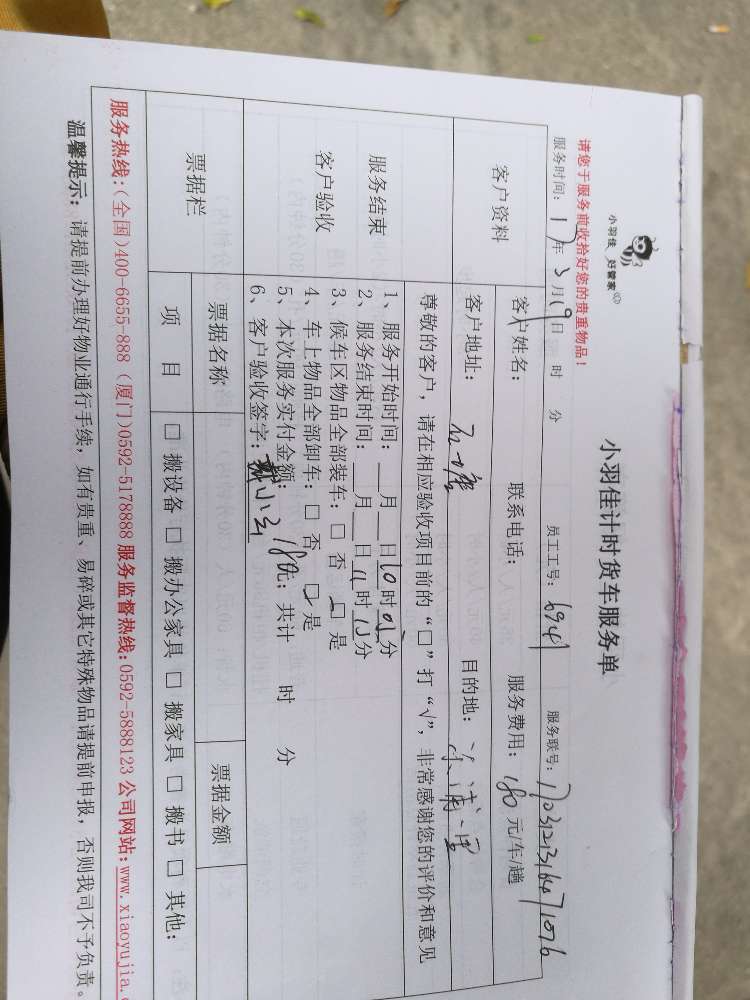 小羽佳 好管家
小羽佳计时货车服务单
请您于服务前收拾好您的贵重物品！
服务时间：17年3月19日 时 分 员工工号：6941 服务联号：
客户资料 客户姓名： 联系电话： 服务费用：180元/车/趟
客户地址： 目的地：
尊敬的客户，请在相应验收项目前的“□”打“√”，非常感谢您的评价和意见
服务结束
客户验收
1、服务开始时间：__月__日10时05分
2、服务结束时间：__月__日11时15分
3、候车区物品全部装车：□ 否 □ 是
4、车上物品全部卸车：□ 否 □ 是
5、本次服务实付金额：180元；共计 时 分
6、客户验收签字：
票据栏 票据名称 票据金额
项 目 □ 搬设备 □ 搬办公家具 □ 搬家具 □ 搬书 □ 其他：
服务热线：(全国)400-6655-888 (厦门)0592-5178888 服务监督热线：0592-5888123 公司网站：www.xiaoyujia.
温馨提示：请提前办理好物业通行手续，如有贵重、易碎或其它特殊物品请提前申报，否则我司不予负责。